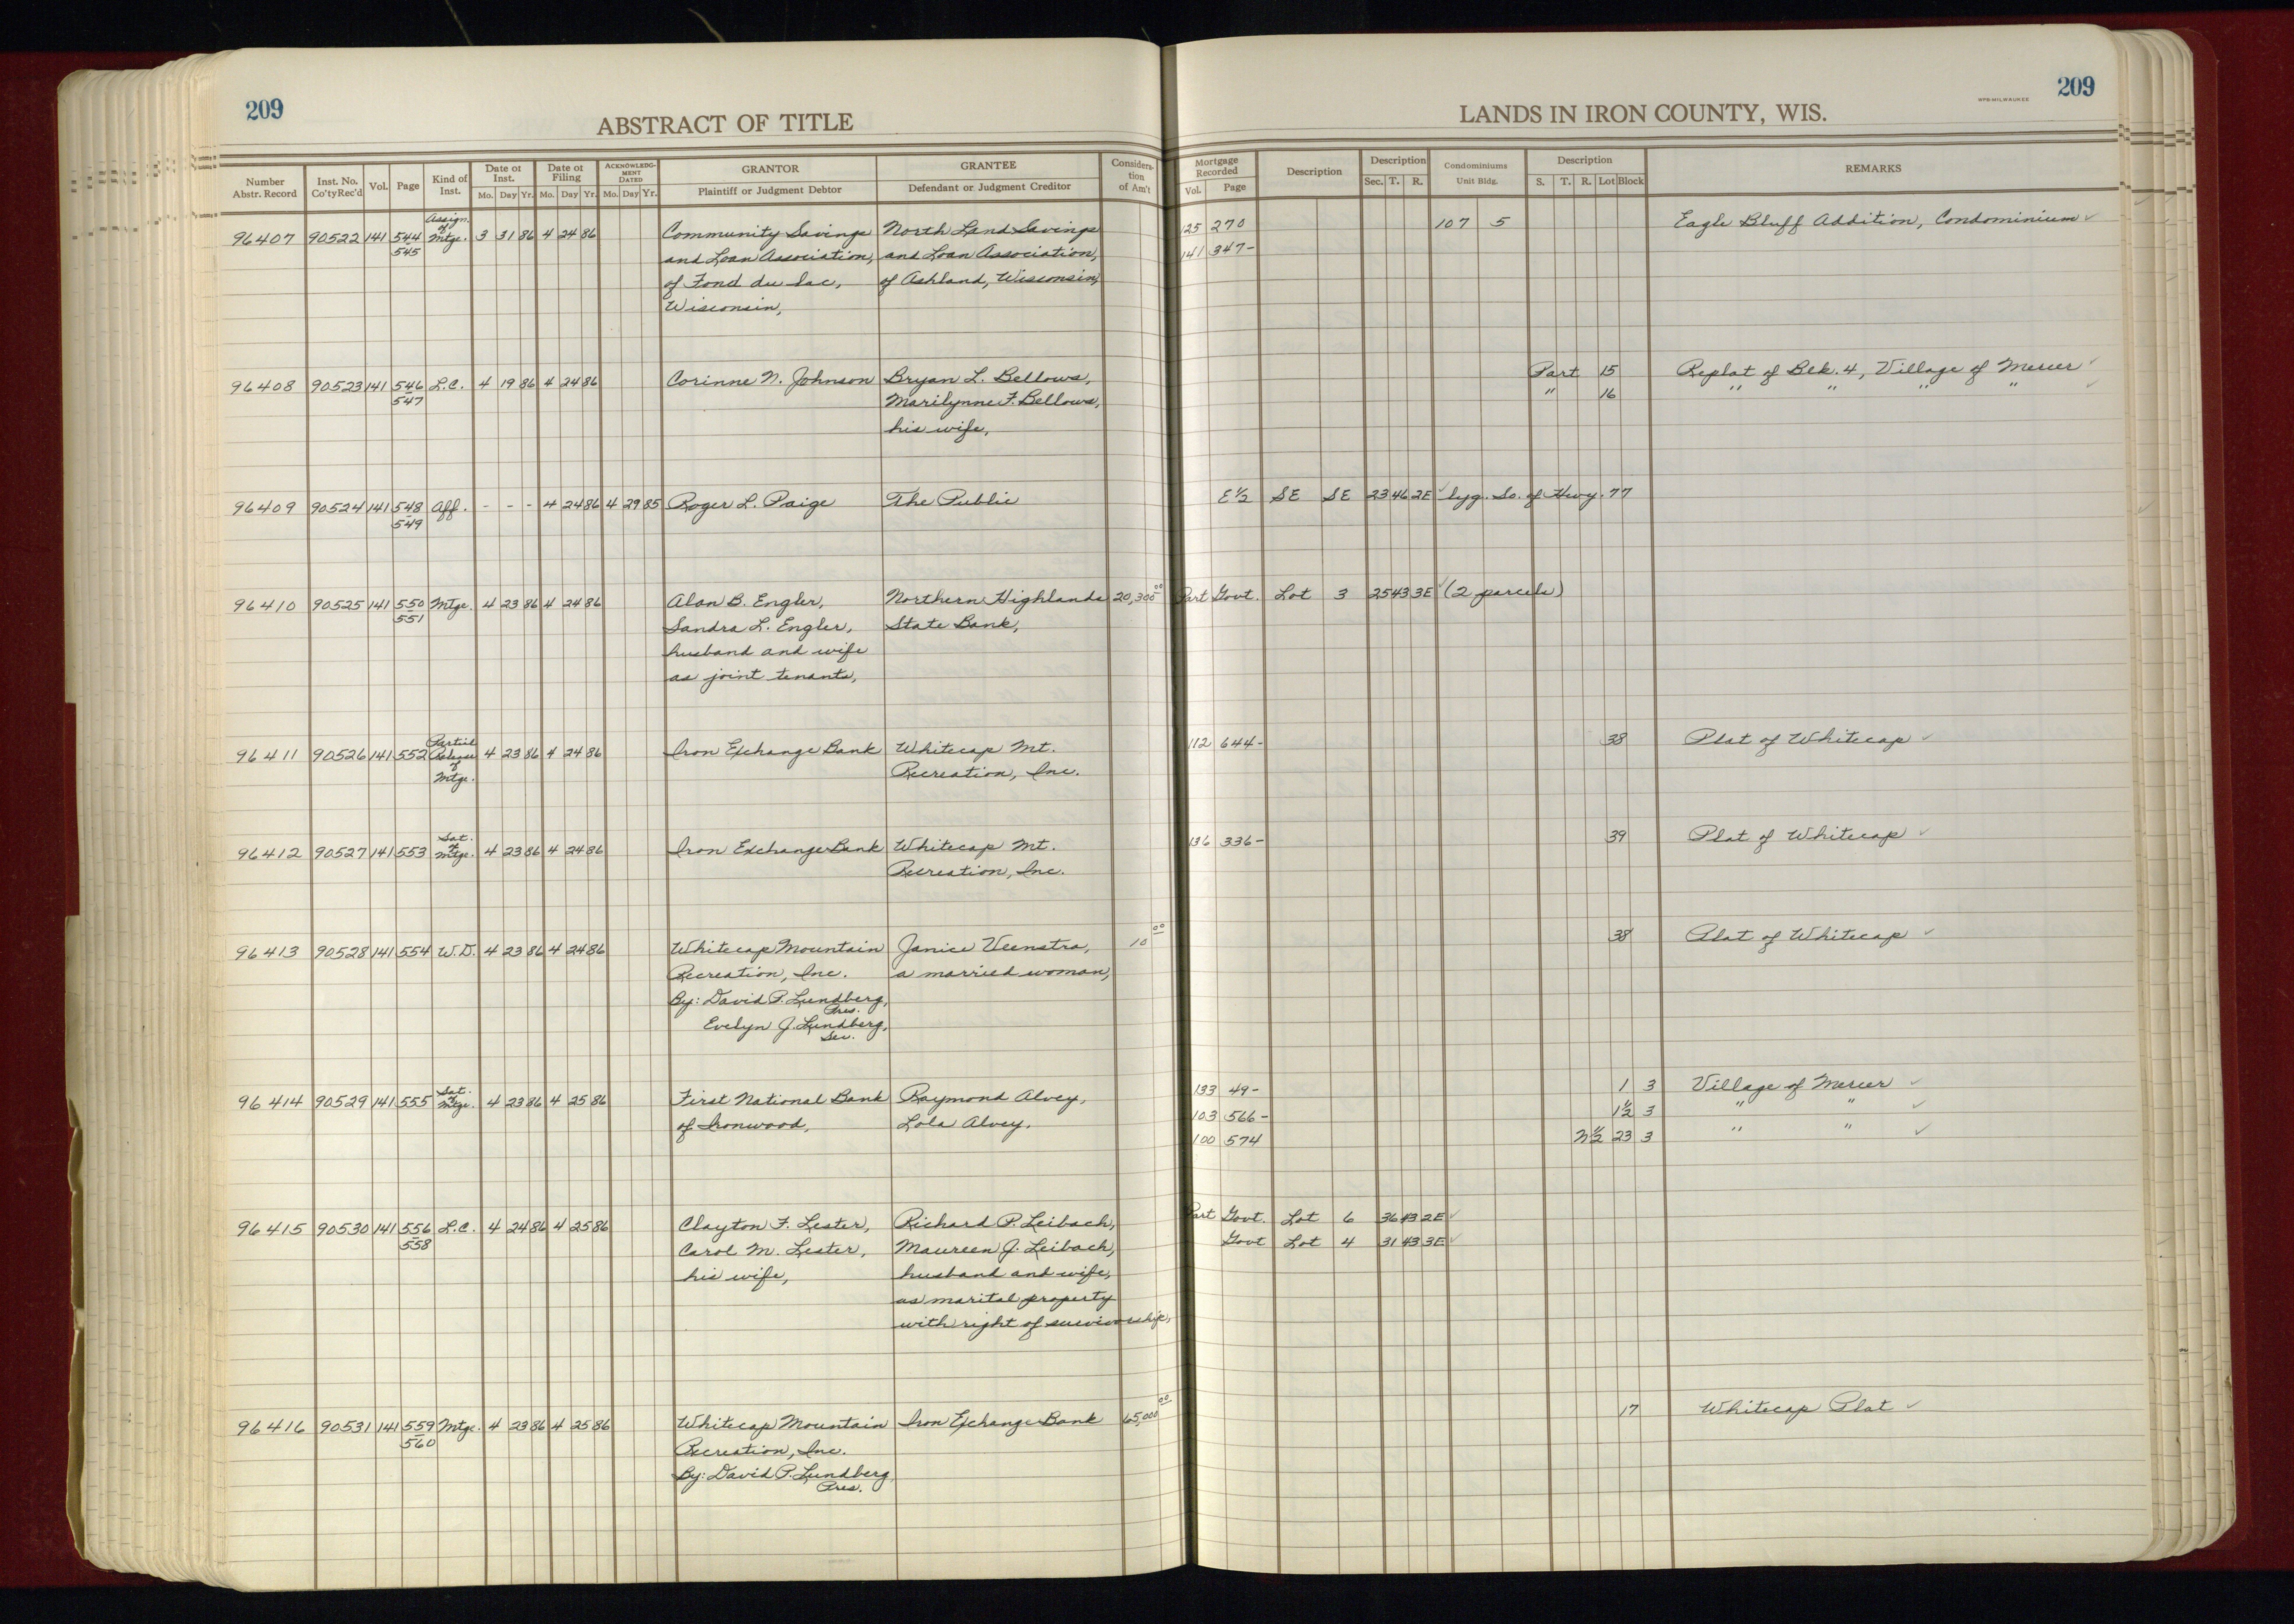 209
209
ABSTRACT OF TITLE
LANDS IN IRON COUNTY, WIS.
WPB-MILWAUKEE
Number Abstr. Record | Inst. No. Co'ty Rec'd | Vol. | Page | Kind of Inst. | Date of Inst. Mo. Day Yr. | Date of Filing Mo. Day Yr. | ACKNOWLEDGMENT DATED Mo. Day Yr. | GRANTOR Plaintiff or Judgment Debtor | GRANTEE Defendant or Judgment Creditor | Consideration of Am't | Mortgage Recorded Vol. Page | Description | Description Sec. T. R. | Condominiums Unit Bldg. | Description S. T. R. Lot Block | REMARKS
96407 90522 141 544 Assign. of Mtge. 3 31 86 4 24 86 Community Savings North Land Savings 125 270 107 5 Eagle Bluff Addition, Condominium ✓
545 and Loan Association, and Loan Association, 141 347-
of Fond du Lac, of Ashland, Wisconsin,
Wisconsin,
96408 90523 141 546 L.C. 4 19 86 4 24 86 Corinne N. Johnson Bryan L. Bellows, Part 15 Replat of Blk. 4, Village of Mercer ✓
547 Marilynne F. Bellows, " 16 " " " " ✓
his wife,
96409 90524 141 548 Aff. - - - 4 24 86 4 29 85 Roger L. Paige The Public E½ SE SE 23 46 2E ✓ lyg. So. of Hwy. 77
549
96410 90525 141 550 Mtge. 4 23 86 4 24 86 Alan B. Engler, Northern Highlands 20,300 00 Part Govt. Lot 3 25 43 3E ✓ (2 parcels)
551 Sandra L. Engler, State Bank,
husband and wife
as joint tenants,
96411 90526 141 552 Partial Release of Mtge. 4 23 86 4 24 86 Iron Exchange Bank Whitecap Mt. 112 644- 38 Plat of Whitecap ✓
Recreation, Inc.
96412 90527 141 553 Sat. of Mtge. 4 23 86 4 24 86 Iron Exchange Bank Whitecap Mt. 136 336- 39 Plat of Whitecap ✓
Recreation, Inc.
96413 90528 141 554 W.D. 4 23 86 4 24 86 Whitecap Mountain Janice Veenstra, 10 00 38 Plat of Whitecap ✓
Recreation, Inc. a married woman,
By: David P. Lundberg, Pres.
Evelyn J. Lundberg, Sec.
96414 90529 141 555 Sat. of Mtge. 4 23 86 4 25 86 First National Bank Raymond Alvey, 133 49- 1 3 Village of Mercer ✓
of Ironwood, Lola Alvey. 103 566- 1½ 3 " " ✓
100 574 N½ 23 3 " " ✓
96415 90530 141 556 L.C. 4 24 86 4 25 86 Clayton F. Lester, Richard P. Leibach, Part Govt. Lot 6 36 43 2E ✓
558 Carol M. Lester, Maureen J. Leibach, Govt Lot 4 31 43 3E ✓
his wife, husband and wife,
as marital property
with right of survivorship,
96416 90531 141 559 Mtge. 4 23 86 4 25 86 Whitecap Mountain Iron Exchange Bank 65,000 00 17 Whitecap Plat ✓
560 Recreation, Inc.
By: David P. Lundberg, Pres.